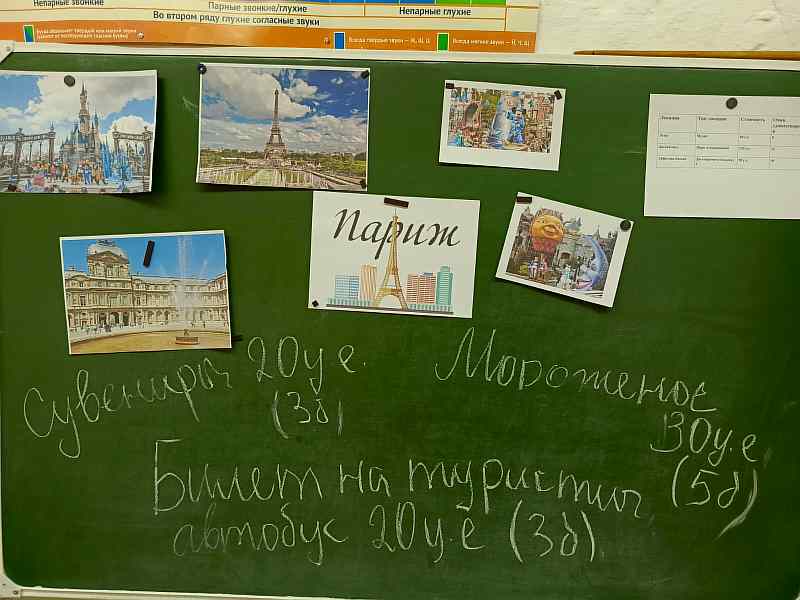 Непарные звонкие
Парные звонкие/глухие
Непарные глухие
Во втором ряду глухие согласные звуки
Всегда твёрдые звуки — Ж, Ш, Ц
Всегда мягкие звуки — Й, Ч, Щ
Париж
Сувениры 20 у.е.
(3б)
Мороженое
30 у.е
(5б)
Билет на туристич
автобус 20 у.е (3б)